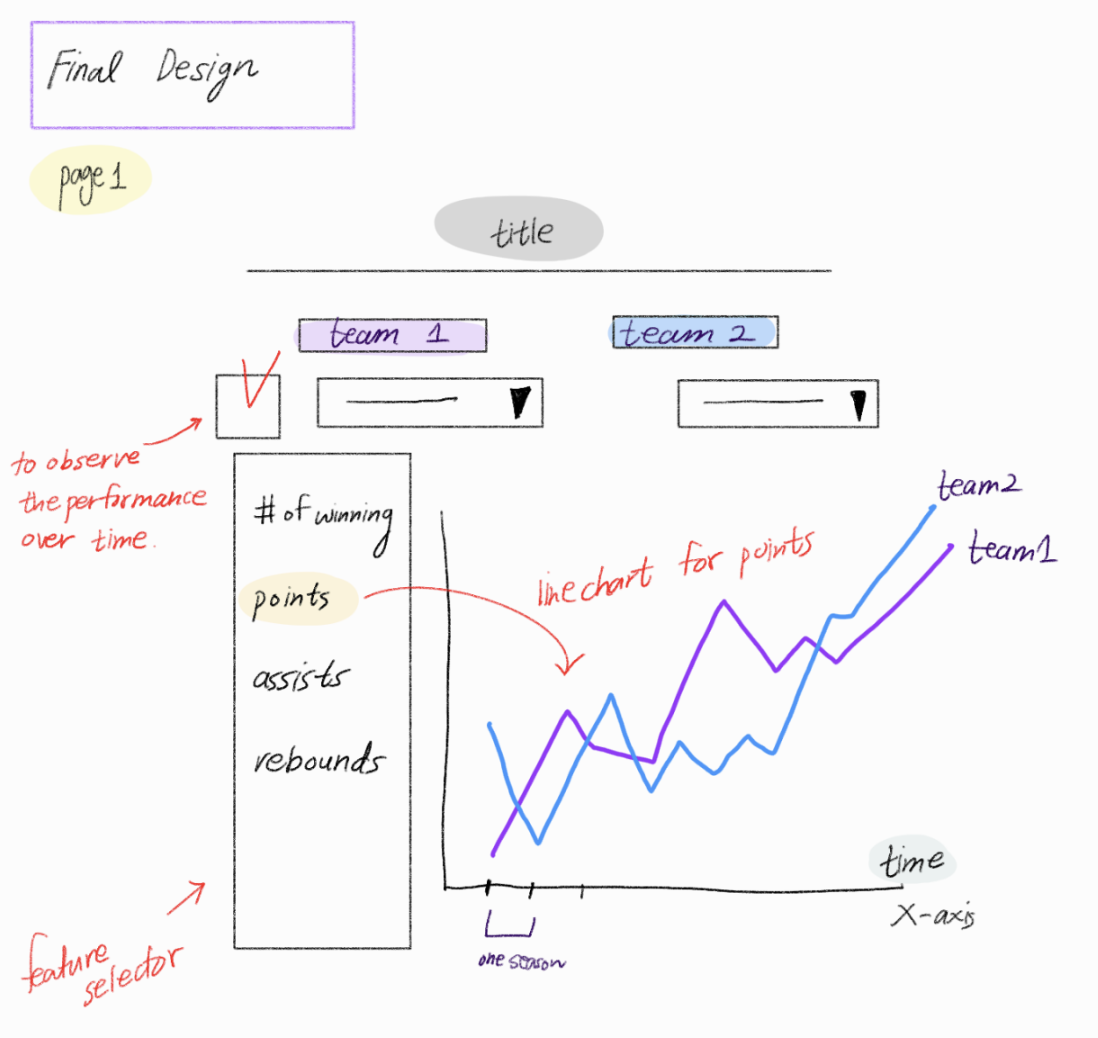 Final Design
page 1
title
team 1
team 2
to observe
the performance
over time.
# of winning
points
assists
rebounds
line chart for points
team2
team1
time
X-axis
one season
feature
selector